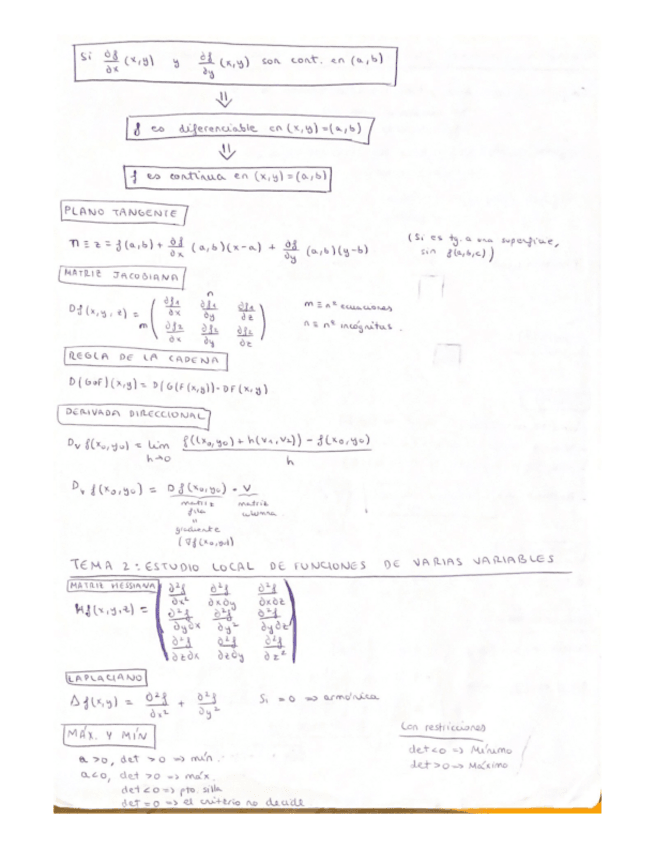 Si ∂f/∂x (x,y) y ∂f/∂y (x,y) son cont. en (a,b)
⇓
f es diferenciable en (x,y)=(a,b)
⇓
f es continua en (x,y)=(a,b)
PLANO TANGENTE
π ≡ z = f(a,b) + ∂f/∂x (a,b)(x-a) + ∂f/∂y (a,b)(y-b)
(Si es tg. a una superficie,
sin f(a,b,c))
MATRIZ JACOBIANA
n
Df(x,y,z) = m ( ∂f₁/∂x ∂f₁/∂y ∂f₁/∂z
∂f₂/∂x ∂f₂/∂y ∂f₂/∂z )
m ≡ nº ecuaciones
n ≡ nº incógnitas.
REGLA DE LA CADENA
D(G∘F)(x,y) = D(G(F(x,y))·DF(x,y)
DERIVADA DIRECCIONAL
Dv f(x₀,y₀) = lim h→0 f((x₀,y₀) + h(v₁,v₂)) - f(x₀,y₀) / h
Dv f(x₀,y₀) = Df(x₀,y₀) · v
matriz fila
matriz columna.
=
gradiente
(∇f(x₀,y₀))
TEMA 2: ESTUDIO LOCAL DE FUNCIONES DE VARIAS VARIABLES
MATRIZ HESSIANA
Hf(x,y,z) = ( ∂²f/∂x² ∂²f/∂x∂y ∂²f/∂x∂z
∂²f/∂y∂x ∂²f/∂y² ∂²f/∂y∂z
∂²f/∂z∂x ∂²f/∂z∂y ∂²f/∂z² )
LAPLACIANO
Δf(x,y) = ∂²f/∂x² + ∂²f/∂y²
Si =0 => armónica
MÁX. Y MÍN
a>0, det >0 => mín.
a<0, det >0 => máx.
det <0 => pto. silla
det =0 => el criterio no decide
Con restricciones
det <0 => Mínimo
det >0 => Máximo